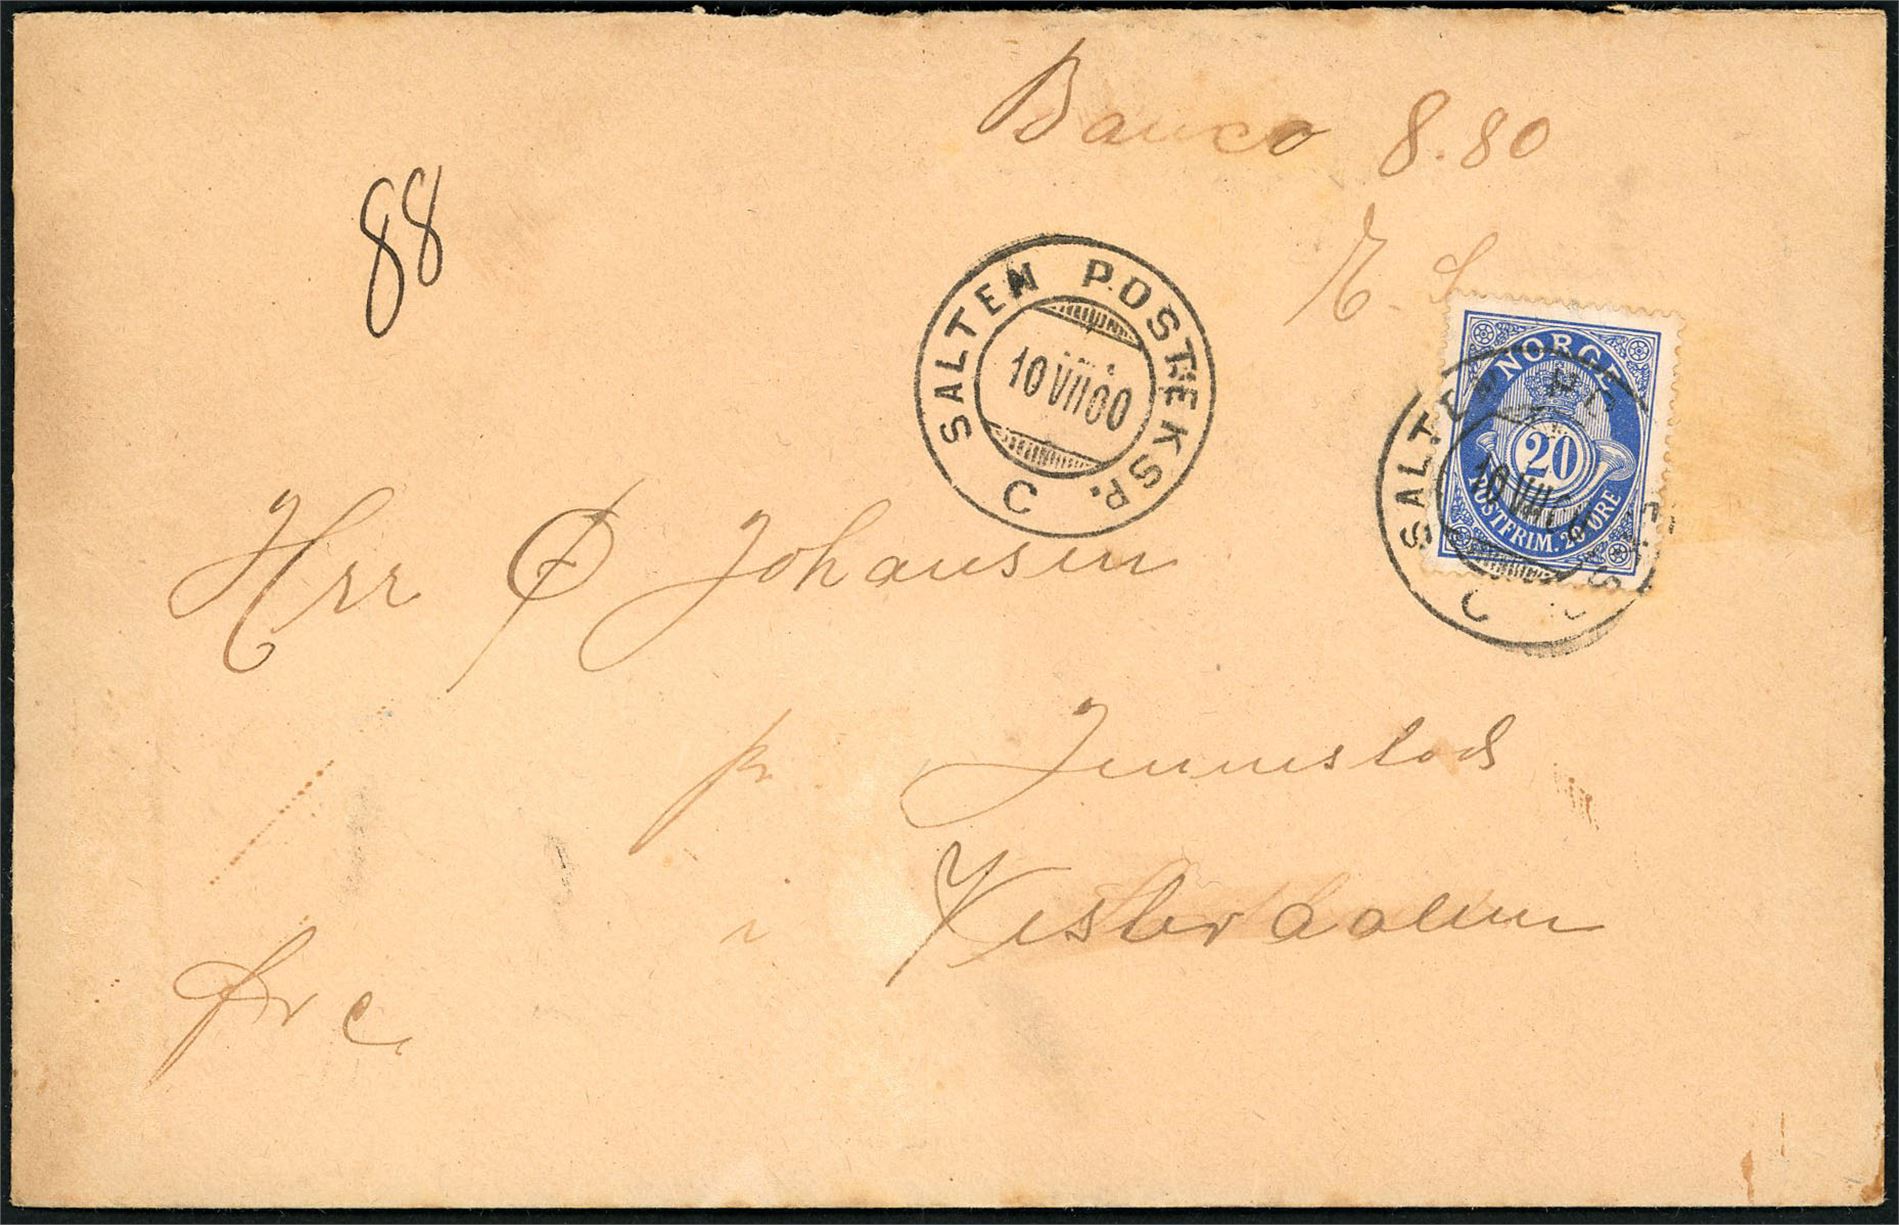 Banco 8.80
88
SALTEN POSTEKSP. C
10 VII 00
NORGE
20
POSTFRIM. 20 ØRE
SALTEN
10 VII
C
Hrr Ø Johansen
pr Jennestad
i Vesteraalen
frc.